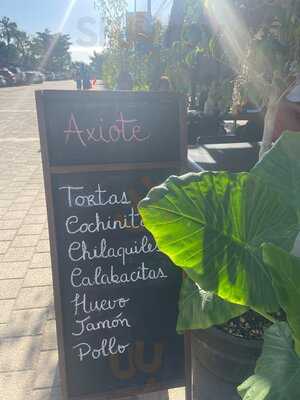 Axiote
Tortas
Cochinita
Chilaquiles
Calabacitas
Huevo
Jamón
Pollo